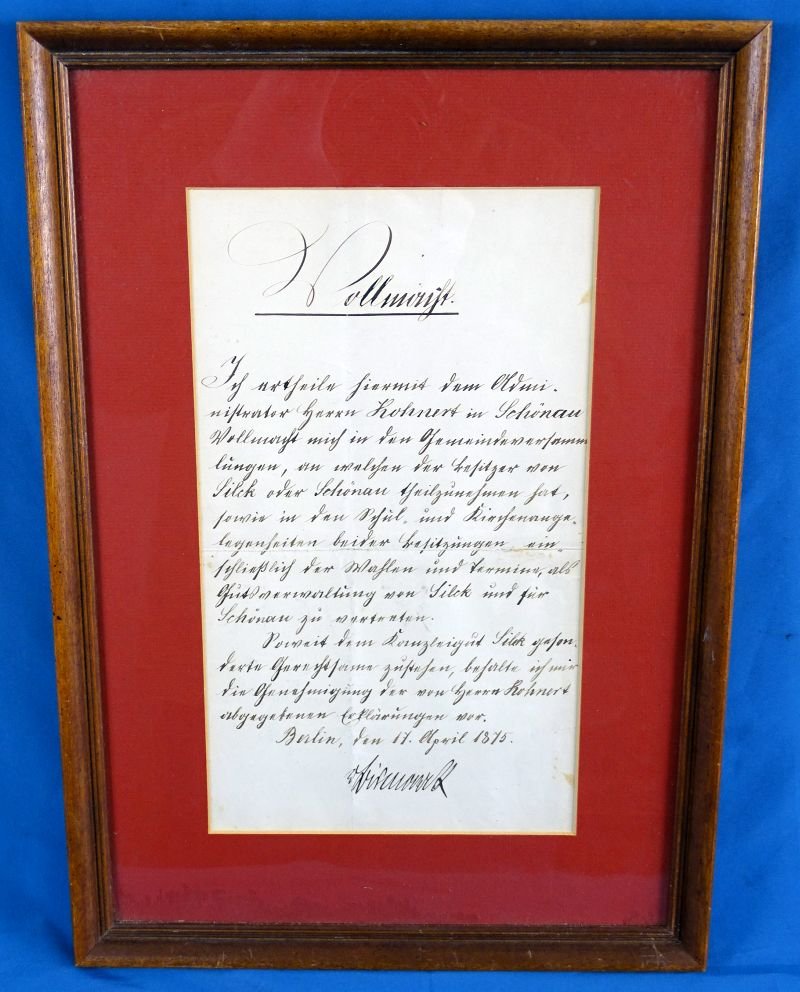 Vollmacht.
Ich ertheile hiermit dem Admi-
nistrator Herrn Kohnert in Schönau
Vollmacht mich in den Gemeindeversamm
lungen, an welchen der Besitzer von
Silck oder Schönau theilzunehmen hat,
sowie in den Schul- und Kirchenange-
legenheiten beider Besitzungen ein-
schließlich der Wahlen und Termine, als
Gutsverwaltung von Silck und für
Schönau zu vertreten.
Soweit dem Kanzleigut Silck geson-
derte Gerechtsame zustehen, behalte ich mir
die Genehmigung der von Herrn Kohnert
abgegebenen Erklärungen vor.
Berlin, den 17. April 1875.
v Bismarck